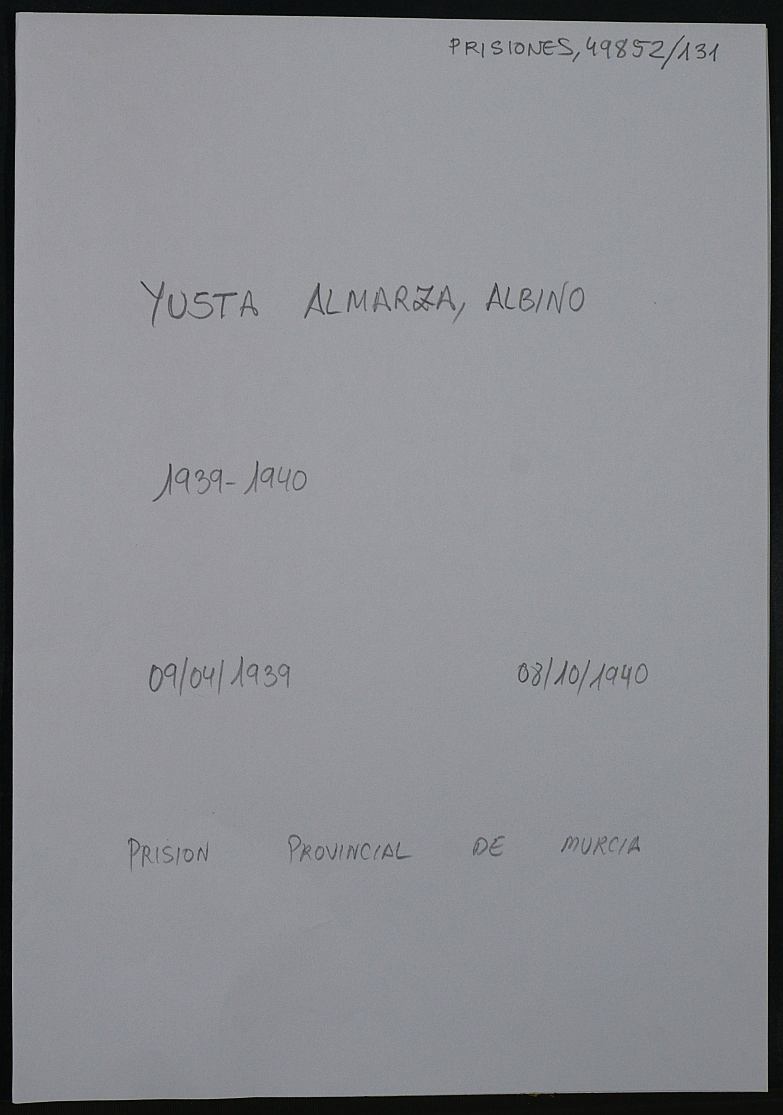 PRISIONES, 49852/131
YUSTA ALMARZA, ALBINO
1939-1940
09/04/1939 08/10/1940
PRISION PROVINCIAL DE MURCIA